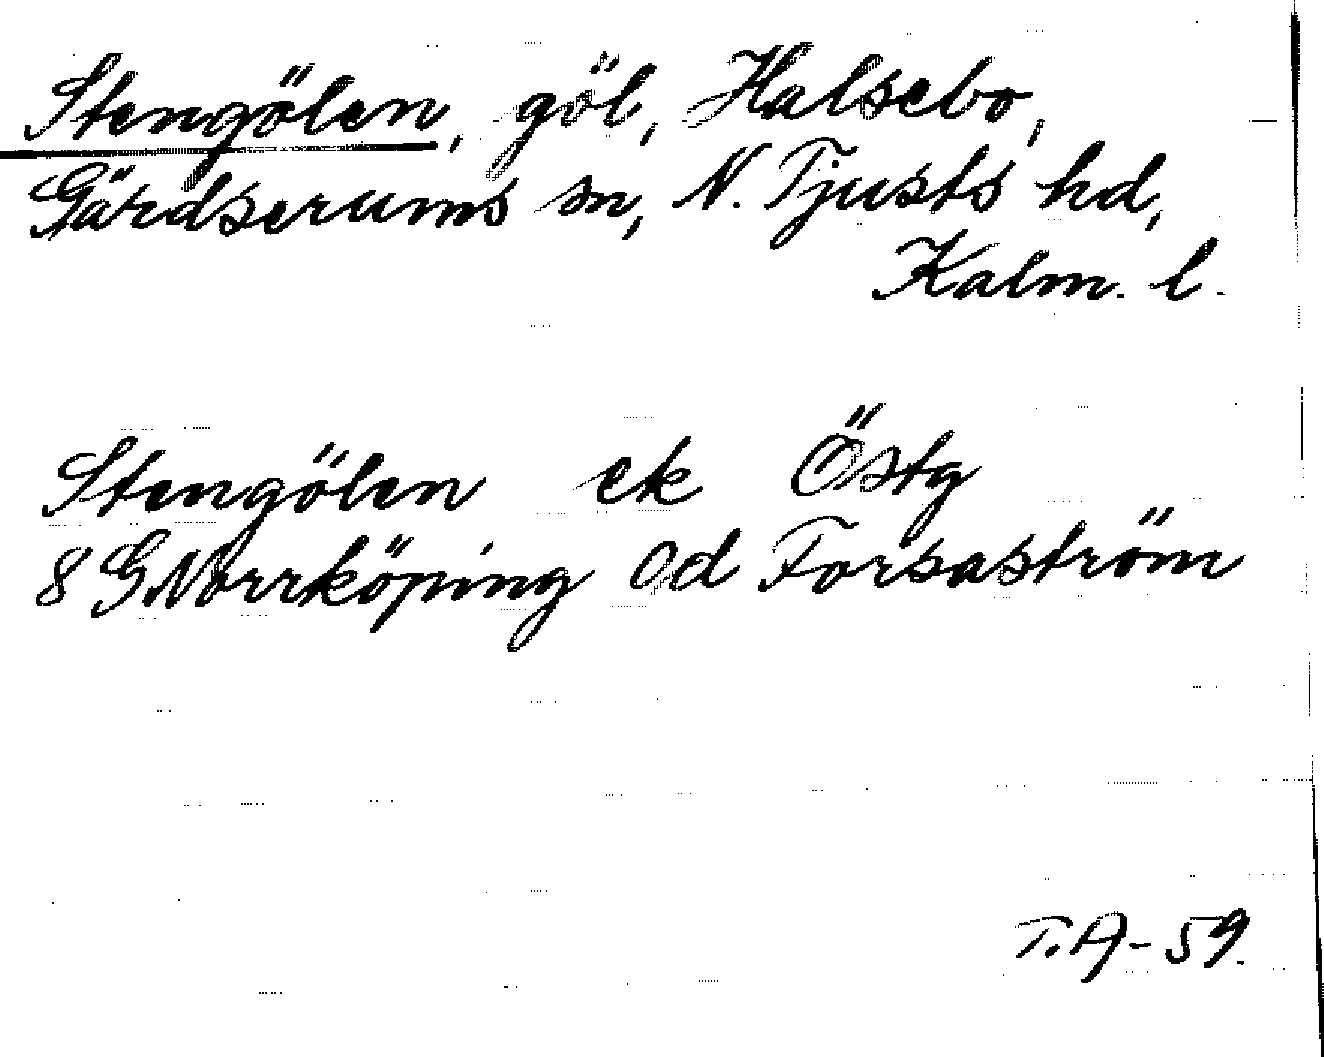 Stengölen, göl, Halsebo,
Gärdserums sn, N. Tjusts hd,
Kalm. l.
Stengölen ek Östg
8 G Norrköping Od Forsaström
T.A-59.